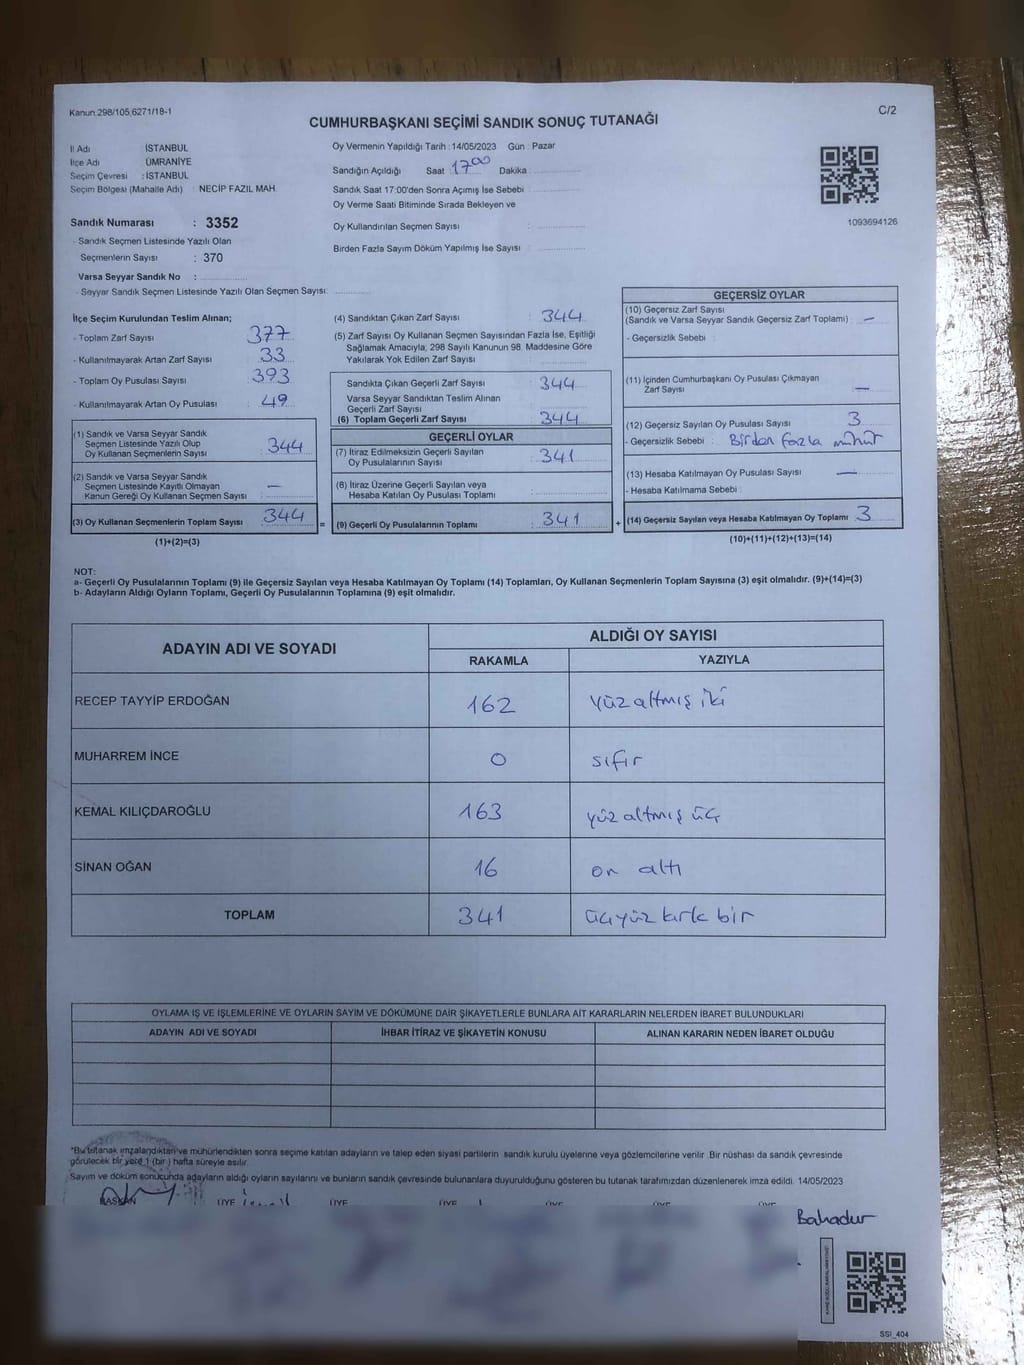 Kanun.298/105,6271/18-1
C/2
CUMHURBAŞKANI SEÇİMİ SANDIK SONUÇ TUTANAĞI
İl Adı İSTANBUL
İlçe Adı ÜMRANİYE
Seçim Çevresi : İSTANBUL
Seçim Bölgesi (Mahalle Adı) : NECİP FAZIL MAH.
Sandık Numarası : 3352
- Sandık Seçmen Listesinde Yazılı Olan
Seçmenlerin Sayısı : 370
Varsa Seyyar Sandık No :
- Seyyar Sandık Seçmen Listesinde Yazılı Olan Seçmen Sayısı:
Oy Vermenin Yapıldığı Tarih : 14/05/2023 Gün : Pazar
Sandığın Açıldığı Saat : 17 00 Dakika
Sandık Saat 17:00'den Sonra Açımış İse Sebebi :
Oy Verme Saati Bitiminde Sırada Bekleyen ve
Oy Kullandırılan Seçmen Sayısı :
Birden Fazla Sayım Döküm Yapılmış İse Sayısı :
1093694126
İlçe Seçim Kurulundan Teslim Alınan;
- Toplam Zarf Sayısı 377
- Kullanılmayarak Artan Zarf Sayısı 33
- Toplam Oy Pusulası Sayısı 393
- Kullanılmayarak Artan Oy Pusulası 49
(1) Sandık ve Varsa Seyyar Sandık
Seçmen Listesinde Yazılı Olup
Oy Kullanan Seçmenlerin Sayısı 344
(2) Sandık ve Varsa Seyyar Sandık
Seçmen Listesinde Kayıtlı Olmayan
Kanun Gereği Oy Kullanan Seçmen Sayısı : —
(3) Oy Kullanan Seçmenlerin Toplam Sayısı 344 =
(1)+(2)=(3)
(4) Sandıktan Çıkan Zarf Sayısı : 344
(5) Zarf Sayısı Oy Kullanan Seçmen Sayısından Fazla İse, Eşitliği
Sağlamak Amacıyla, 298 Sayılı Kanunun 98. Maddesine Göre
Yakılarak Yok Edilen Zarf Sayısı
Sandıkta Çıkan Geçerli Zarf Sayısı : 344
Varsa Seyyar Sandıktan Teslim Alınan
Geçerli Zarf Sayısı
(6) Toplam Geçerli Zarf Sayısı 344
GEÇERLİ OYLAR
(7) İtiraz Edilmeksizin Geçerli Sayılan
Oy Pusulalarının Sayısı : 341
(8) İtiraz Üzerine Geçerli Sayılan veya
Hesaba Katılan Oy Pusulası Toplamı :
(9) Geçerli Oy Pusulalarının Toplamı : 341 +
GEÇERSİZ OYLAR
(10) Geçersiz Zarf Sayısı
(Sandık ve Varsa Seyyar Sandık Geçersiz Zarf Toplamı) : —
- Geçersizlik Sebebi :
(11) İçinden Cumhurbaşkanı Oy Pusulası Çıkmayan
Zarf Sayısı —
(12) Geçersiz Sayılan Oy Pusulası Sayısı 3
- Geçersizlik Sebebi : Birden fazla mühür
(13) Hesaba Katılmayan Oy Pusulası Sayısı : —
- Hesaba Katılmama Sebebi :
(14) Geçersiz Sayılan veya Hesaba Katılmayan Oy Toplamı 3
(10)+(11)+(12)+(13)=(14)
NOT:
a- Geçerli Oy Pusulalarının Toplamı (9) ile Geçersiz Sayılan veya Hesaba Katılmayan Oy Toplamı (14) Toplamları, Oy Kullanan Seçmenlerin Toplam Sayısına (3) eşit olmalıdır. (9)+(14)=(3)
b- Adayların Aldığı Oyların Toplamı, Geçerli Oy Pusulalarının Toplamına (9) eşit olmalıdır.
ADAYIN ADI VE SOYADI ALDIĞI OY SAYISI
RAKAMLA YAZIYLA
RECEP TAYYİP ERDOĞAN 162 yüz altmış iki
MUHARREM İNCE 0 sıfır
KEMAL KILIÇDAROĞLU 163 yüz altmış üç
SİNAN OĞAN 16 on altı
TOPLAM 341 üçyüz kırk bir
OYLAMA İŞ VE İŞLEMLERİNE VE OYLARIN SAYIM VE DÖKÜMÜNE DAİR ŞİKAYETLERLE BUNLARA AİT KARARLARIN NELERDEN İBARET BULUNDUKLARI
ADAYIN ADI VE SOYADI İHBAR İTİRAZ VE ŞİKAYETİN KONUSU ALINAN KARARIN NEDEN İBARET OLDUĞU
*Bu tutanak imzalandıktan ve mühürlendikten sonra seçime katılan adayların ve talep eden siyasi partilerin sandık kurulu üyelerine veya gözlemcilerine verilir .Bir nüshası da sandık çevresinde
görülecek bir yere 1 (bir ) hafta süreyle asılır.
Sayım ve döküm sonucunda adayların aldığı oyların sayılarını ve bunların sandık çevresinde bulunanlara duyurulduğunu gösteren bu tutanak tarafımızdan düzenlenerek imza edildi. 14/05/2023
BAŞKAN ÜYE ÜYE ÜYE ÜYE ÜYE ÜYE
Bahadur
SSI_404